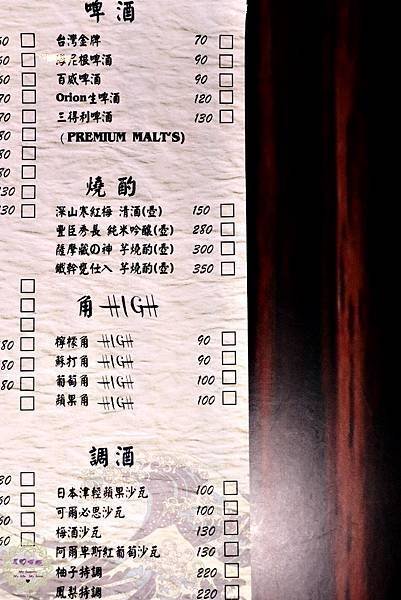 啤酒
台灣金牌 70
海尼根啤酒 90
百威啤酒 90
Orion生啤酒 120
三得利啤酒 130
(PREMIUM MALT'S)
燒酌
深山寒紅梅 清酒(壺) 150
豊臣秀長 純米吟釀(壺) 280
薩摩蔵の神 芋燒酌(壺) 300
鐵幹甕仕入 芋燒酌(壺) 350
角 HIGH
檸檬角 HIGH 90
蘇打角 HIGH 90
葡萄角 HIGH 100
蘋果角 HIGH 100
調酒
日本津輕蘋果沙瓦 100
可爾必思沙瓦 100
梅酒沙瓦 130
阿爾卑斯紅葡萄沙瓦 130
柚子特調 220
鳳梨特調 220